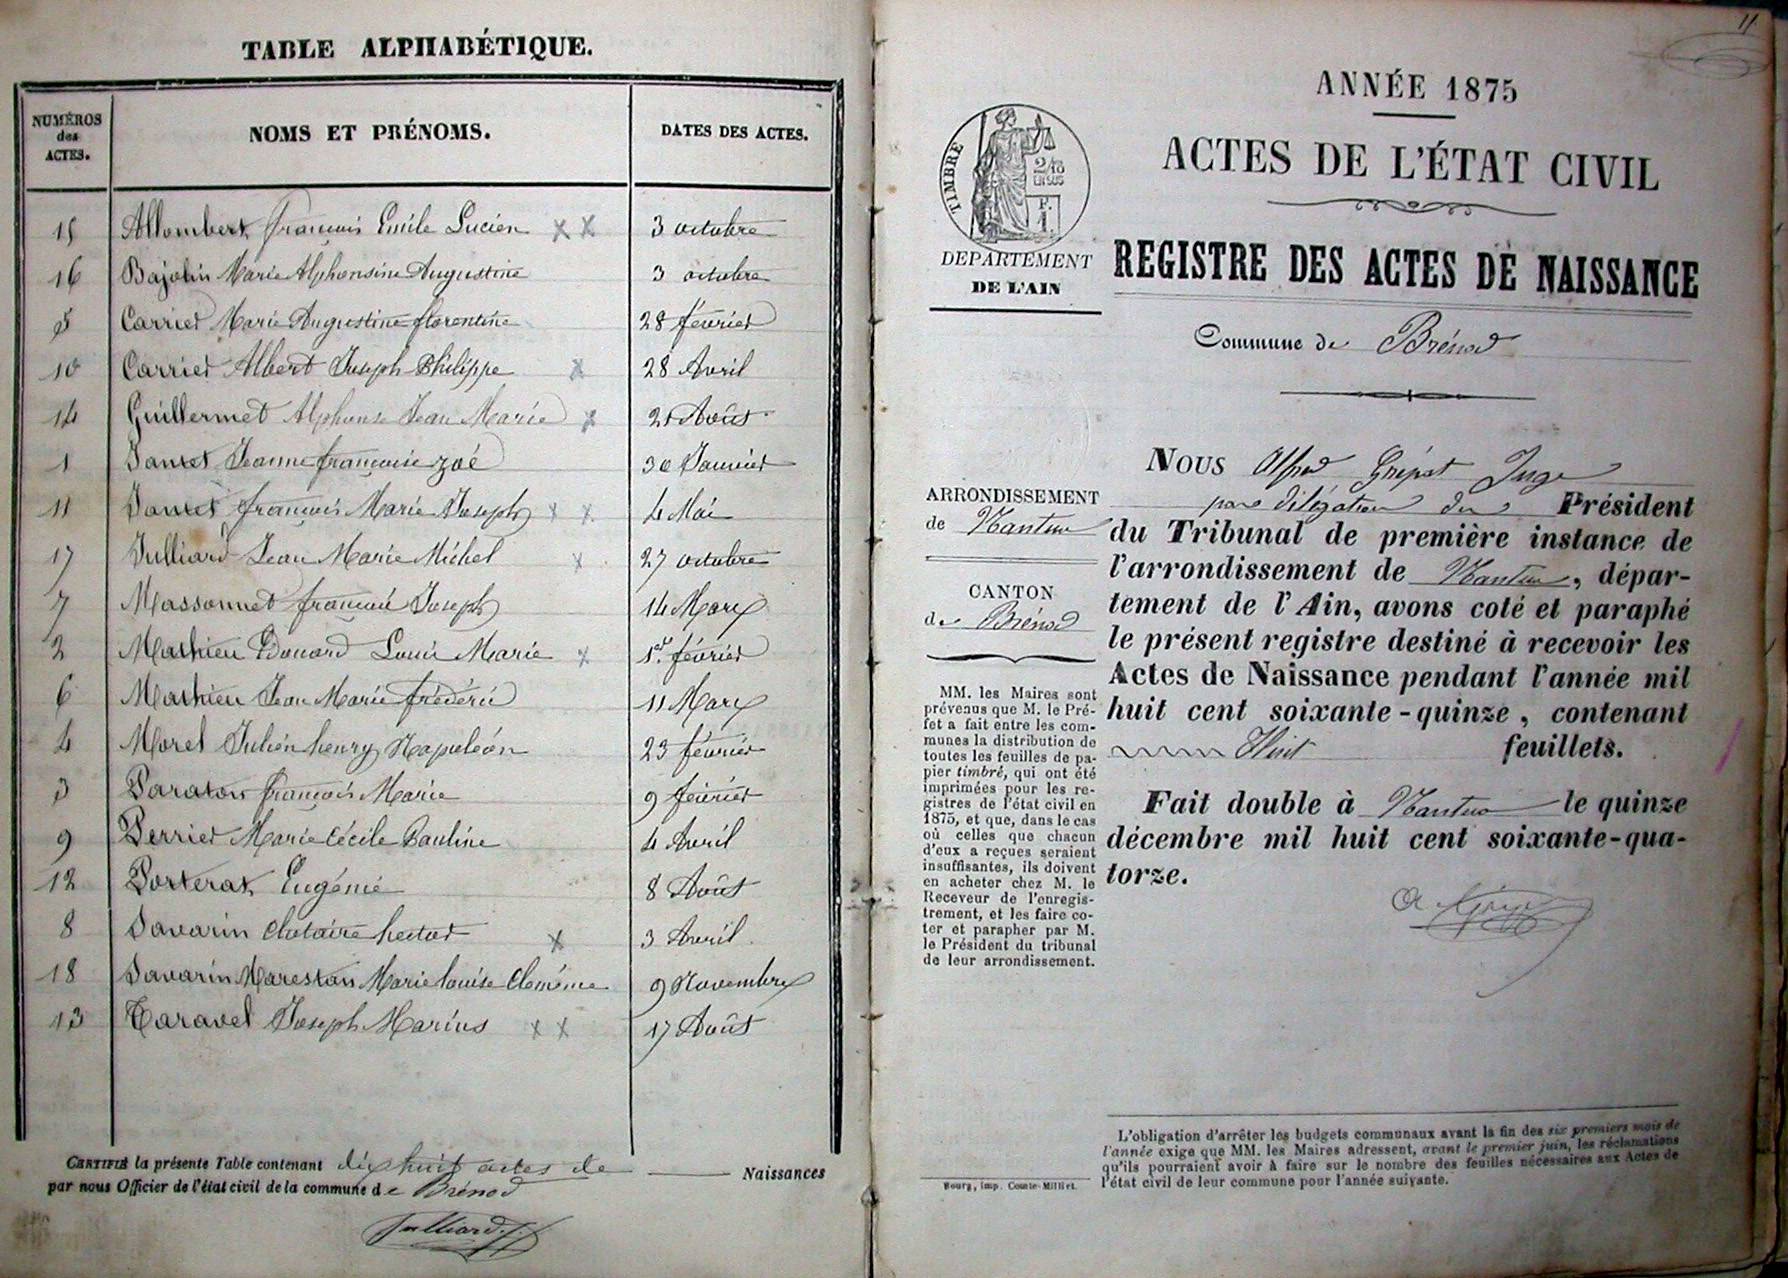 TABLE ALPHABÉTIQUE.
NUMÉROS des ACTES. NOMS ET PRÉNOMS. DATES DES ACTES.
15 Allombert françois Emile Lucien x x 3 octobre
16 Bajolin Marie Alphonsine Augustine 3 octobre
5 Carrier Marie Augustine florentine 28 février
10 Carrier Albert Joseph Philippe x 28 Avril
14 Guillermet Alphonse Jean Marie x 21 Août
1 Jantet Jeanne françoise zoé 30 Janvier
11 Jantet françois Marie Joseph x x 4 Mai
17 Julliard Jean Marie Michel x 27 octobre
7 Massonnet françois Joseph 14 Mars
2 Mathieu Edouard Louis Marie x 1er février
6 Mathieu Jean Marie frédéric 11 Mars
4 Morel Julien henry Napoléon 23 février
3 Paraton françois Marie 9 février
9 Perrier Marie Cécile Pauline 4 Avril
12 Porterat Eugénie 8 Août
8 Savarin Clotaire hector x 3 Avril
18 Savarin Marestan Marie louise Clémence 9 Novembre
13 Taravel Joseph Marius x x 17 Août
CERTIFIÉ la présente Table contenant dix huit actes de Naissances
par nous Officier de l'état civil de la commune de Brénod
Julliard
11
ANNÉE 1875
ACTES DE L'ÉTAT CIVIL
REGISTRE DES ACTES DE NAISSANCE
Commune de Brénod
TIMBRE
2/10
EN SUS
F.
1.
DEPARTEMENT
DE L'AIN
ARRONDISSEMENT
de Nantua
CANTON
de Brénod
MM. les Maires sont
prévenus que M. le Pré-
fet a fait entre les com-
munes la distribution de
toutes les feuilles de pa-
pier timbré, qui ont été
imprimées pour les re-
gistres de l'état civil en
1875, et que, dans le cas
où celles que chacun
d'eux a reçues seraient
insuffisantes, ils doivent
en acheter chez M. le
Receveur de l'enregis-
trement, et les faire co-
ter et parapher par M.
le Président du tribunal
de leur arrondissement.
NOUS Alfred Grépat Juge
par délégation du Président
du Tribunal de première instance de
l'arrondissement de Nantua, dépar-
tement de l'Ain, avons coté et paraphé
le présent registre destiné à recevoir les
Actes de Naissance pendant l'année mil
huit cent soixante-quinze, contenant
Huit feuillets.
Fait double à Nantua le quinze
décembre mil huit cent soixante-qua-
torze.
L'obligation d'arrêter les budgets communaux avant la fin des six premiers mois de
l'année exige que MM. les Maires adressent, avant le premier juin, les réclamations
qu'ils pourraient avoir à faire sur le nombre des feuilles nécessaires aux Actes de
l'état civil de leur commune pour l'année suivante.
Bourg, imp. Comte-Milliet.